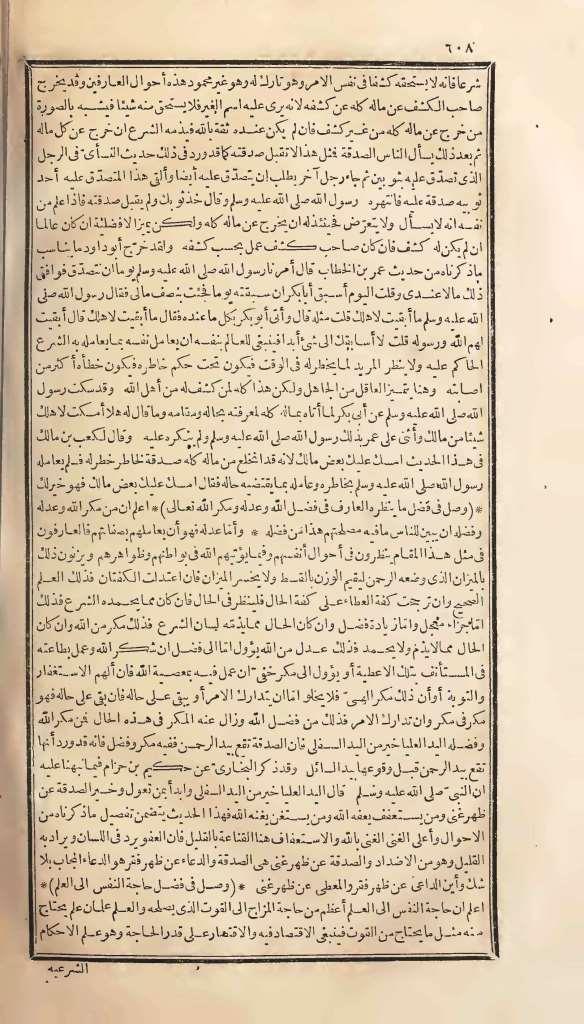 ٦٠٨
شرعا فانه لا يستحقه كشفا في نفس الامر وهو تارك له وهو غير محمود هذه أحوال العارفين وقد يخرج
صاحب الكشف عن ماله كله عن كشفه لانه يرى عليه اسم الغير فلا يستحق منه شيئا فيشبه بالصورة
من خرج عن ماله كله من غير كشف فان لم يكن عنده ثقة بالله فيذمه الشرع ان خرج عن كل ماله
ثم بعد ذلك يسأل الناس الصدقة فمثل هذا لا تقبل صدقته كما قد ورد في ذلك حديث النسأى في الرجل
الذى تصدق عليه بثوبين ثم جاء رجل آخر يطلب ان يتصدق عليه أيضا وألقى هذا المتصدق عليه أحد
ثوبيه صدقة عليه فانتهره رسول الله صلى الله عليه وسلم وقال خذ ثوبك ولم يقبل صدقته فاذا علم من
نفسه انه لا يسأل ولا يتعرّض فحينئذ له ان يخرج عن ماله كله ولكن بميزان الافضلية ان كان عالما
ان لم يكن له كشف فان كان صاحب كشف عمل بحسب كشفه ولقد خرّج أبو داود ما يناسب
ما ذكرناه من حديث عمر بن الخطاب قال أمرنا رسول الله صلى الله عليه وسلم يوما ان نتصدّق فوافق
ذلك مالا عندى وقلت اليوم أسبق أبا بكر ان سبقته يوما فجئت بنصف مالى فقال رسول الله صلى
الله عليه وسلم ما أبقيت لاهلك قلت مثله قال وأتى أبو بكر بكل ما عنده فقال ما أبقيت لاهلك قال أبقيت
لهم الله ورسوله قلت لا أسابقك الى شئ أبدا فينبغى للعالم بنفسه ان يعامل نفسه بما يعامله به الشرع
الحاكم عليه ولا ينظر المريد لما يخطر له في الوقت فيكون تحت حكم خاطره فيكون خطأه أكثر من
اصابته وهنا يتميز العاقل من الجاهل ولكن هذا كله لمن كشف له من أهل الله وقد سكت رسول
الله صلى الله عليه وسلم عن أبي بكر لما أتاه بماله كله لمعرفته بحاله ومقامه وما قال له هلا أمسكت لاهلك
شيئا من مالك وأثنى على عمر بذلك رسول الله صلى الله عليه وسلم ولم ينكره عليه وقال لكعب بن مالك
في هذا الحديث امسك عليك بعض مالك لانه قد انخلع من ماله كله صدقة لخاطر خطر له فلم يعامله
رسول الله صلى الله عليه وسلم بخاطره وعامله بما يقتضيه حاله فقال امسك عليك بعض مالك فهو خير لك
*(وصل في فضل ما ينظره العارف في فضل الله وعدله ومكر الله تعالى)* اعلم ان من مكر الله وعدله
وفضله ان يبين للناس ما فيه مصلحتهم هذا من فضله * وأما عدله فهو أن يعاملهم بصفاتهم فالعارفون
في مثل هذا المقام ينظرون في أحوال أنفسهم وفيما يؤتيهم الله في بواطنهم وظواهرهم ويزنون ذلك
بالميزان الذى وضعه الرحمن ليقيم الوزن بالقسط ولا يخسر الميزان فان اعتدلت الكفتان فذلك العلم
الصحيح وان ترجحت كفة العطاء على كفة الحال فلينظر في الحال فان كان مما يحمده الشرع فذلك
اما جزاء معجل واما زيادة فضل وان كان الحال مما يذمّه لسان الشرع فذلك مكر من الله وان كان
الحال مما لا يذم ولا يحمد فذلك عدل من الله يؤول اما الى فضل ان شكر الله وعمل بطاعته
في المستأنف بتلك الاعطية أو يؤول الى مكر خفي ان عمل فيه بمعصية الله فان ألهم الاستغفار
والتوبة أو أن ذلك مكر الهى فلا يخلو اما ان يتدارك الامر أو يبقى على حاله فان بقى على حاله فهو
مكر في مكر وان تدارك الامر فذلك من فضل الله وزال عنه المكر في هذه الحال فمن مكر الله
وفضله اليد العليا خير من اليد السفلى فان الصدقة تقع بيد الرحمن ففيه مكر وفضل فانه قد ورد أنها
تقع بيد الرحمن قبل وقوعها بيد السائل وقد ذكر البخارى عن حكيم بن حزام فيما نبهنا عليه
ان النبي صلى الله عليه وسلم قال اليد العليا خير من اليد السفلى وابدأ بمن تعول وخير الصدقة عن
ظهر غنى ومن يستعفف يعفه الله ومن يستغن يغنه الله فهذا الحديث يتضمن تفصيل ما ذكرناه من
الاحوال وأعلى الغنى الغنى بالله والاستعفاف هنا القناعة بالقليل فان العفو يرد في اللسان ويراد به
القليل وهو من الاضداد والصدقة عن ظهر غنى هى الصدقة والدعاء عن ظهر فقر هو الدعاء المجاب بلا
شك وأين الداعى عن ظهر فقر والمعطى عن ظهر غنى *(وصل في فضل حاجة النفس الى العلم)*
اعلم ان حاجة النفس الى العلم أعظم من حاجة المزاج الى القوت الذى يصلحه والعلم علمان علم يحتاج
منه مثل ما يحتاج من القوت فينبغى الاقتصاد فيه والاقتصار على قدر الحاجة وهو علم الاحكام
الشرعيه